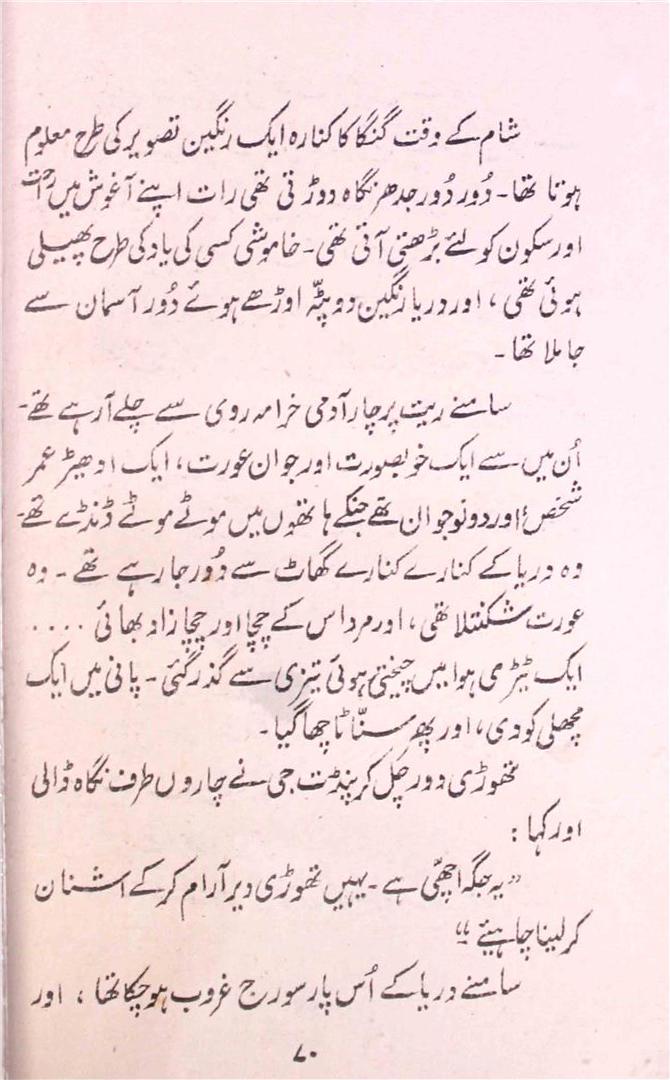 شام کے وقت گنگا کا کنارہ ایک رنگین تصویر کی طرح معلوم
ہوتا تھا۔ دُور دُور جدھر نگاہ دوڑتی تھی رات اپنے آغوش میں راحت
اور سکون کو لئے بڑھتی آتی تھی۔ خاموشی کسی کی یاد کی طرح پھیلی
ہوئی تھی، اور دریا رنگین دوپٹّہ اوڑھے ہوئے دُور آسمان سے
جا ملا تھا۔
سامنے ریت پر چار آدمی خراماں روی سے چلے آرہے تھے۔
اُن میں سے ایک خوبصورت اور جوان عورت، ایک ادھیڑ عمر
شخص، اور دو نوجوان تھے جنکے ہاتھوں میں موٹے موٹے ڈنڈے تھے۔
وہ دریا کے کنارے کنارے گھاٹ سے دُور جا رہے تھے۔ وہ
عورت شکنتلا تھی، اور مرد اس کے چچا اور چچا زاد بھائی ....
ایک ٹیڑی ہوا میں چیختی ہوئی تیزی سے گذر گئی۔ پانی میں ایک
مچھلی کودی، اور پھر سنّاٹا چھا گیا۔
تھوڑی دور چل کر پنڈت جی نے چاروں طرف نگاہ ڈالی
اور کہا:
”یہ جگہ اچھّی ہے۔ یہیں تھوڑی دیر آرام کر کے اشنان
کر لینا چاہیئے“
سامنے دریا کے اُس پار سورج غروب ہو چکا تھا، اور
۷۰